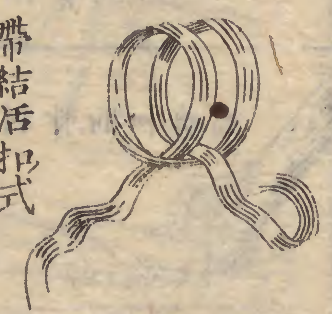 帶結活扣式